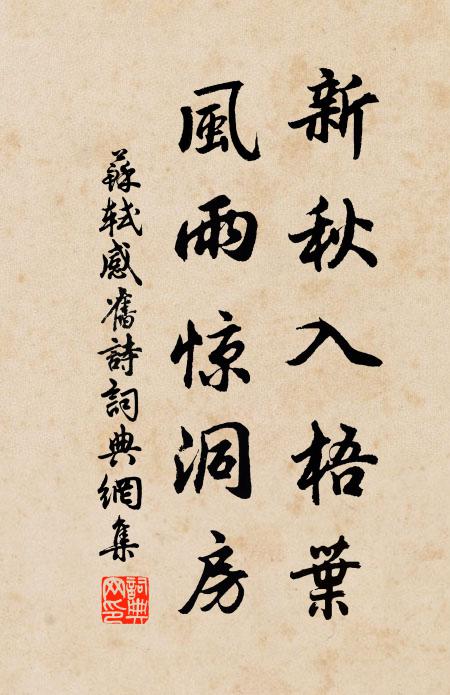 新秋入梧葉
風雨惊洞房
蘇軾感舊詩詞典網集
詞典网印